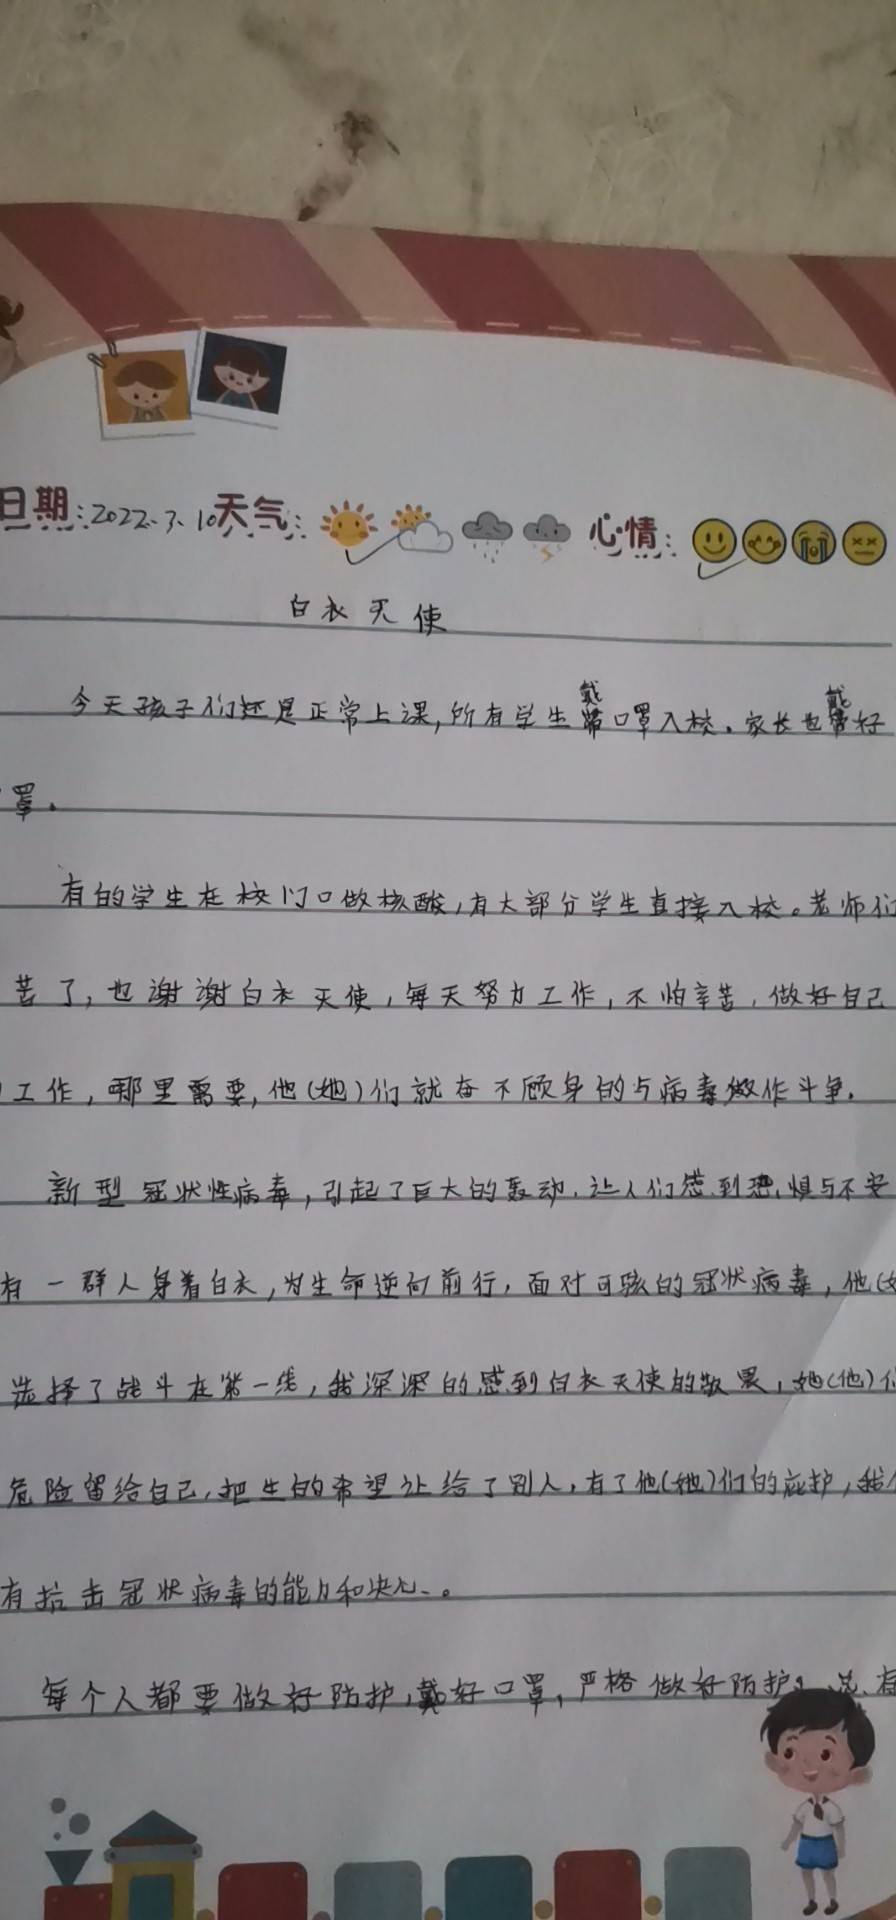 日期: 2022.3.10 天气: 心情:
白衣天使
今天孩子们还是正常上课,所有学生戴口罩入校.家长也戴好
罩.
有的学生在校门口做核酸,有大部分学生直接入校。老师们
苦了,也谢谢白衣天使,每天努力工作,不怕辛苦,做好自己
工作,哪里需要,他(她)们就奋不顾身的与病毒做作斗争.
新型冠状性病毒,引起了巨大的轰动.让人们感到恐惧与不安
有一群人身着白衣,为生命逆向前行,面对可骇的冠状病毒,他(
选择了战斗在第一线,我深深的感到白衣天使的敬畏,她(他)们
危险留给自己,把生的希望让给了别人,有了他(她)们的庇护,我
有抗击冠状病毒的能力和决心.。
每个人都要做好防护,戴好口罩,严格做好防护,